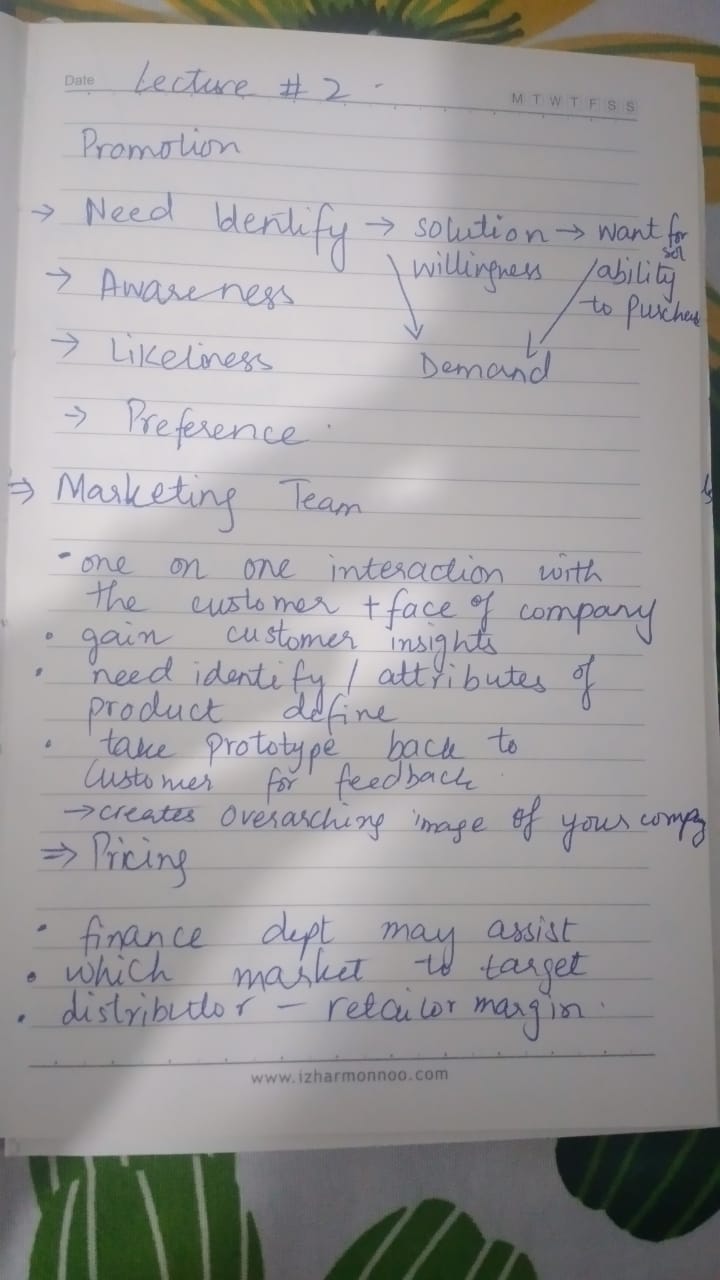 Date Lecture # 2
M T W T F S S
Promotion
→ Need Identify → solution → want for sol
willingness /ability
→ Awareness to Purchase
→ Likeliness Demand
→ Preference
⇒ Marketing Team
• one on one interaction with
the customer + face of company
• gain customer insights
• need identify / attributes of
product define
• take prototype back to
Customer for feedback
→ creates overarching image of your compy
⇒ Pricing
• finance dept may assist
• which market to target
• distributor – retailor margin
www.izharmonnoo.com